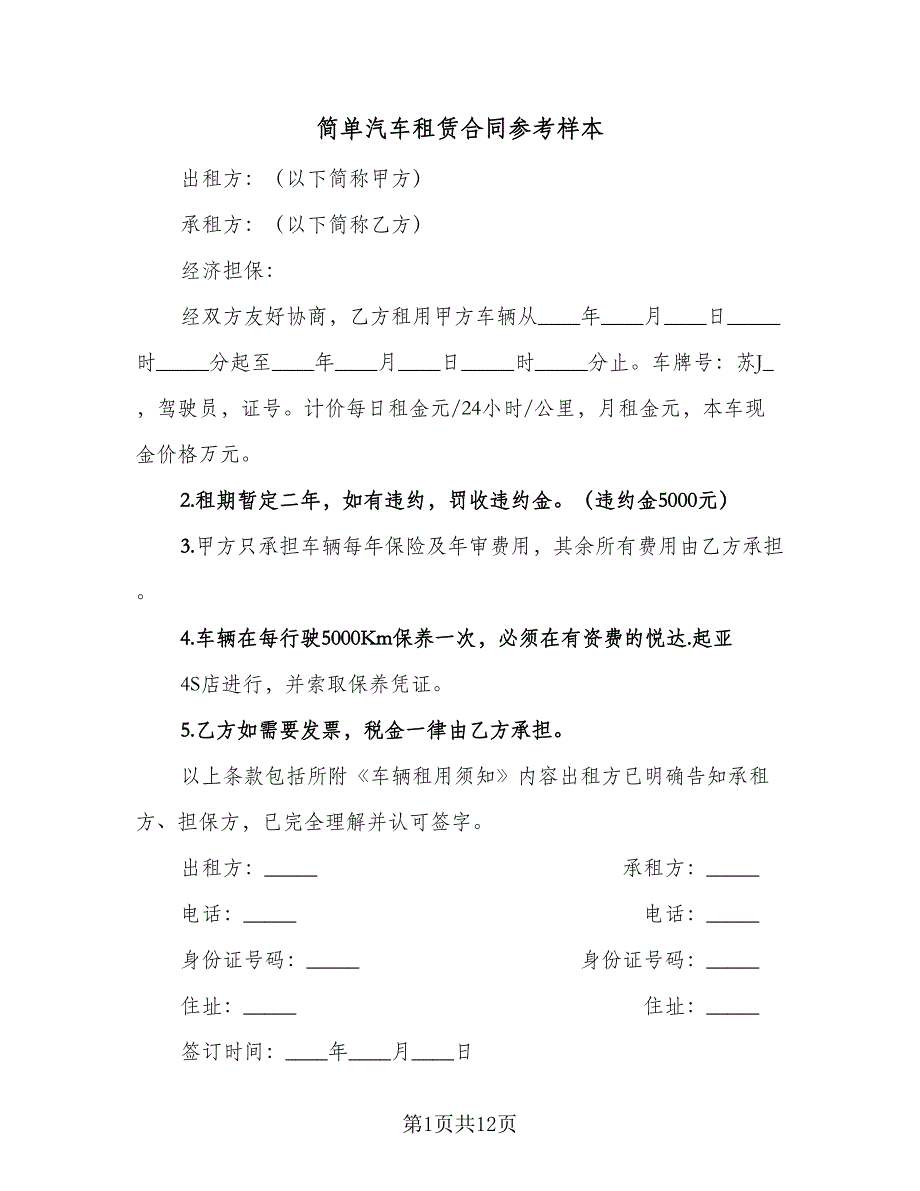 简单汽车租赁合同参考样本
出租方：（以下简称甲方）
承租方：（以下简称乙方）
经济担保：
经双方友好协商，乙方租用甲方车辆从____年____月____日_____
时_____分起至____年____月____日_____时_____分止。车牌号：苏J_
，驾驶员，证号。计价每日租金元/24小时/公里，月租金元，本车现
金价格万元。
2.租期暂定二年，如有违约，罚收违约金。（违约金5000元）
3.甲方只承担车辆每年保险及年审费用，其余所有费用由乙方承担
。
4.车辆在每行驶5000Km保养一次，必须在有资费的悦达.起亚
4S店进行，并索取保养凭证。
5.乙方如需要发票，税金一律由乙方承担。
以上条款包括所附《车辆租用须知》内容出租方已明确告知承租
方、担保方，已完全理解并认可签字。
出租方：_____ 承租方：_____
电话：_____ 电话：_____
身份证号码：_____ 身份证号码：_____
住址：_____ 住址：_____
签订时间：____年____月____日
第1页共12页